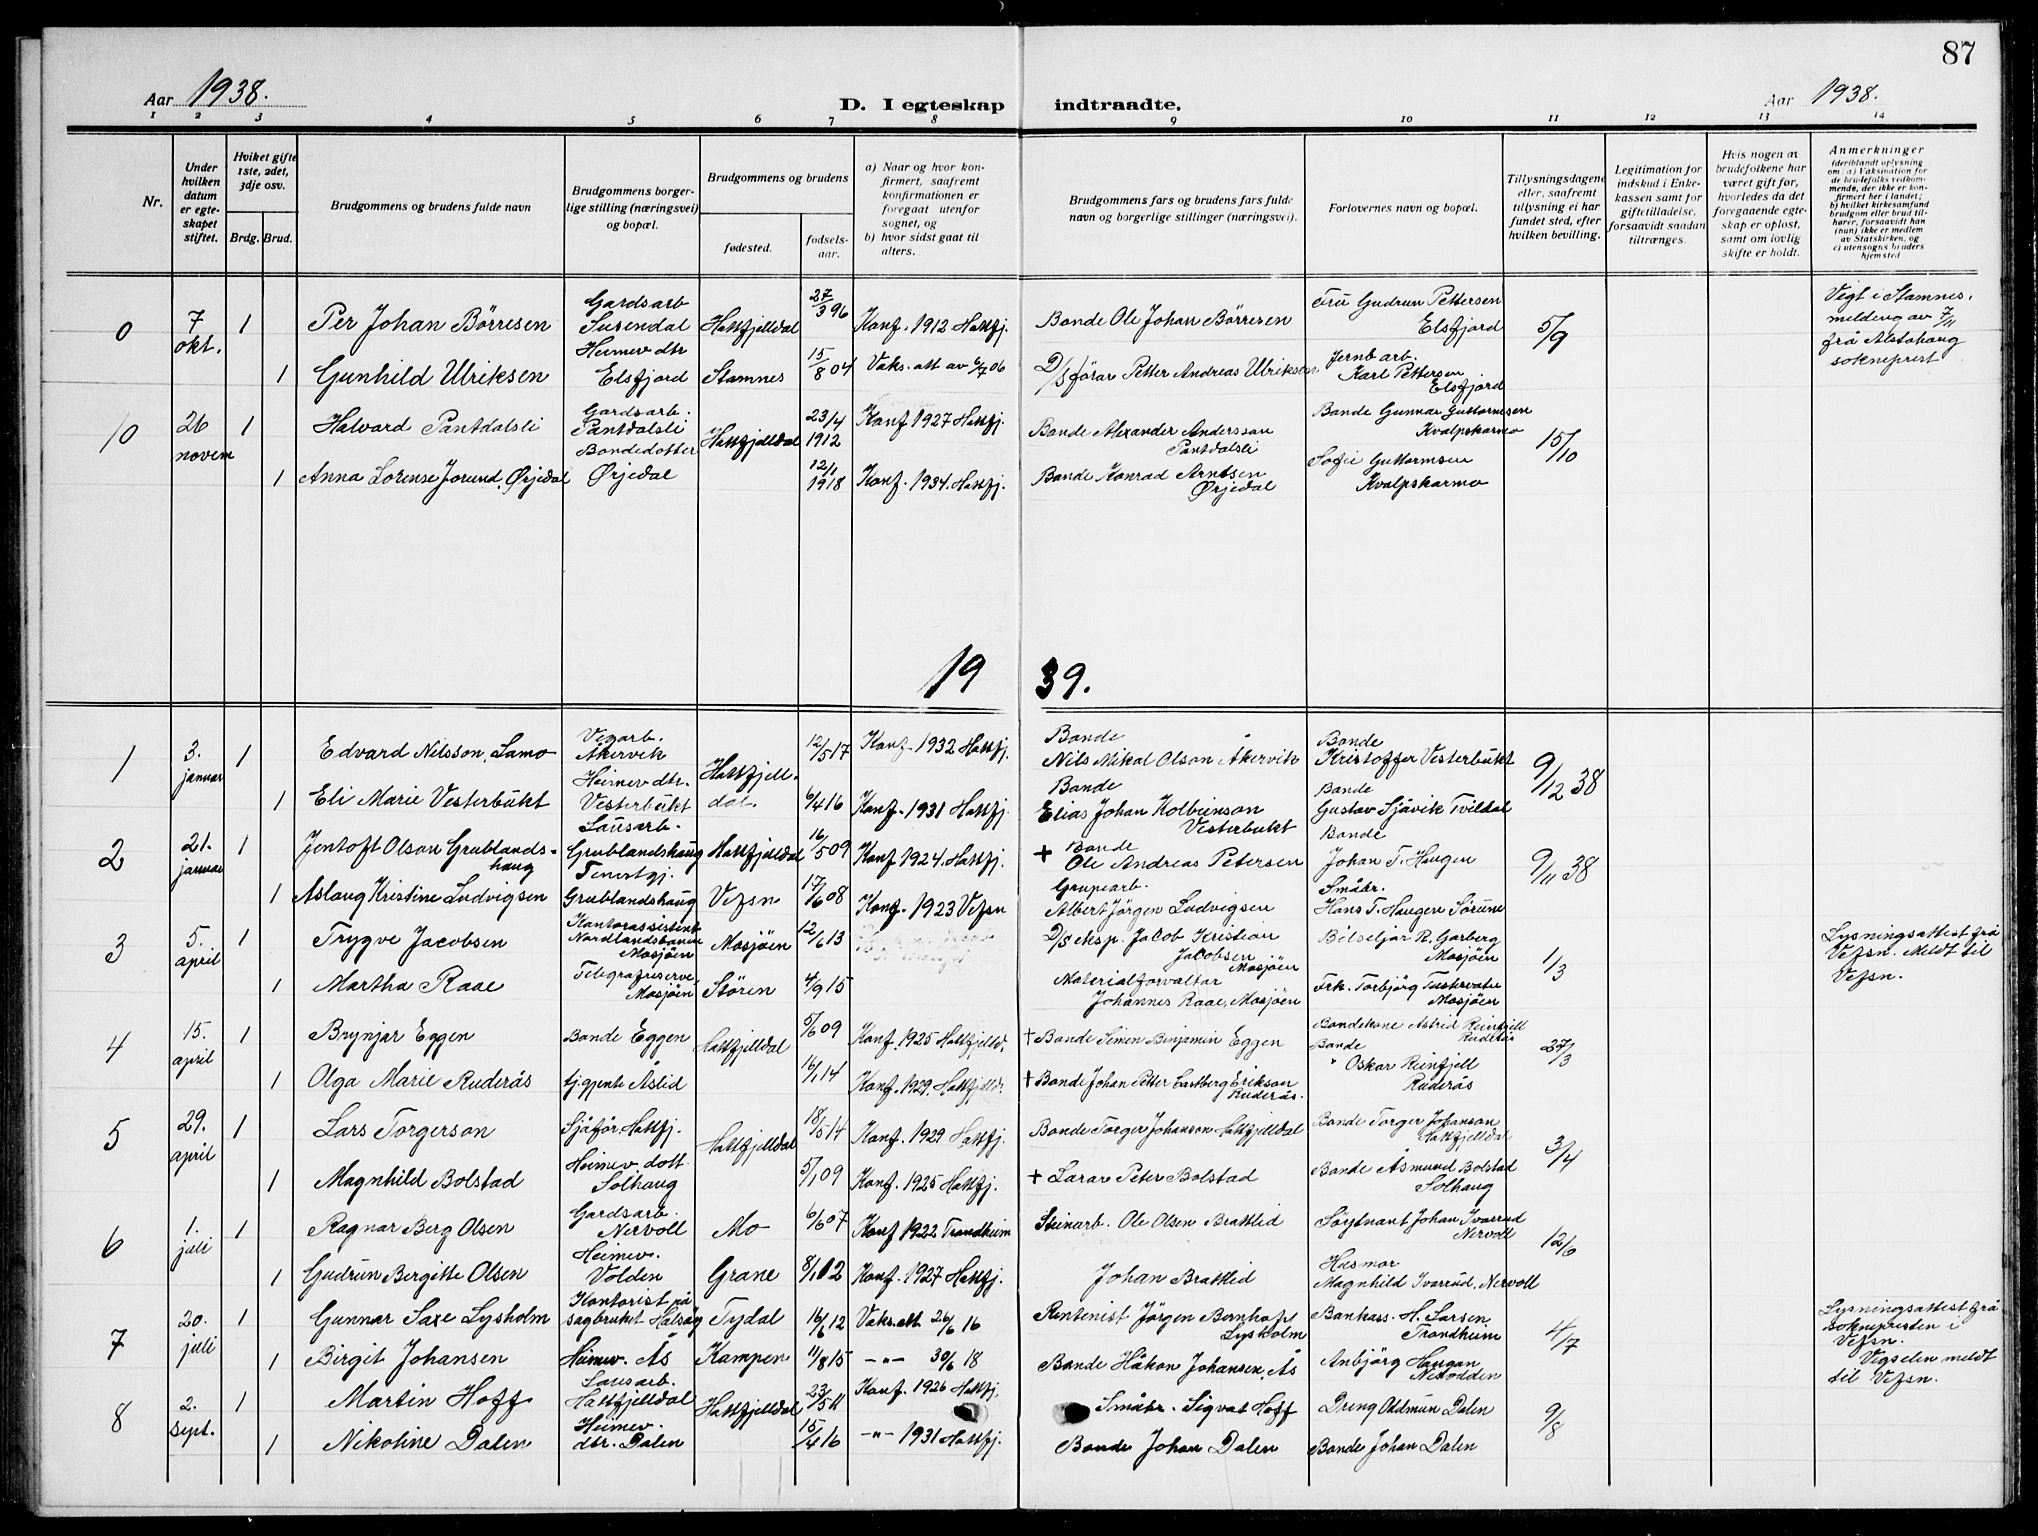 87
Aar 1938.
D. I egteskap indtraadte.
Aar 1938.
1 2 3 4 5 6 7 8 9 10 11 12 13 14
Nr.
Under
hvilken
datum
er egte-
skapet
stiftet.
Hvilket gifte
1ste, 2det,
3dje osv.
Brdg. Brud.
Brudgommens og brudens fulde navn
Brudgommens borger-
lige stilling (næringsvei)
og bopæl.
Brudgommens og brudens
fødested.
fødsels-
aar.
a) Naar og hvor kon-
firmert, saafremt
konfirmationen er
foregaat utenfor
sognet, og
b) hvor sidst gaat til
alters.
Brudgommens fars og brudens fars fulde
navn og borgerlige stillinger (næringsvei).
Forlovernes navn og bopæl.
Tillysningsdagene
eller, saafremt
tillysning ei har
fundet sted, efter
hvilken bevilling.
Legitimation for
indskud i Enke-
kassen samt for
giftetilladelse,
forsaavidt saadan
tiltrænges.
Hvis nogen av
brudefolkene har
været gift før,
hvorledes da det
foregaaende egte-
skap er opløst,
samt om lovlig
skifte er holdt.
Anmerkninger
(deriblandt oplysning
om: a) Vaksination for
de brudefolks vedkom-
mende, der ikke er kon-
firmert her i landet;
b) hvilket kirkesamfund
brudgom eller brud til-
hører, forsaavidt han
(hun) ikke er medlem
av Statskirken, og
c) utensogns bruders
hjemsted
0 7 okt. 1 Per Johan Börresen Gardsarb Susendal Hattfjelldal 27/3 96 Konf. 1912 Hattfj. Bonde Ole Johan Börresen Fru Gudrun Pettersen Elsfjord 5/9 Vigt i Stamnes, melding av 7/11 frå Alstahaug sokneprest
1 Gunhild Ulriksen Heimev dtr Elsfjord Stamnes 15/8 04 Vaks. att av 6/7 06 D/s förar Petter Andreas Ulriksen Jernb arb. Karl Pettersen Elsfjord
10 26 novem 1 Halvard Pantdalsli Gardsarb. Pantdalsli Hattfjelldal 23/4 1912 Konf 1927 Hattfj. Bonde Alexander Andersson Pantdalsli Bonde Gunnar Guttormsen Kvalpskarmo 15/10
1 Anna Lorense Jorund, Ørjedal Bondedotter Ørjedal 12/1 1918 Konf. 1934. Hattfj. Bonde Konrad Arntsen Ørjedal Sofie Guttormsen Kvalpskarmo
19 39.
1 3. januar 1 Edvard Nilsson, Lamo Vegarb. Åkervik Hattfjell- dal. 12/5 17 Konf. 1932 Hattfj. Bonde Nils Mikal Olson Åkervik Bonde Kristoffer Vesterbukt 9/12 38
1 Eli Marie Vesterbukt Heimev dtr. Vesterbukt 6/4 16 Konf. 1931 Hattfj. Bonde Elias Johan Kolbeinson Vesterbukt Bonde Gustav Sjåvik Tvildal
2 21. januar 1 Jentoft Olson Grublands- haug Lausarb. Grublandshaug Hattfjelldal 16/5 09 Konf 1924. Hattfj. + Bonde Ole Andreas Petersen Bonde Johan T. Haugen 9/11 38
1 Aslaug Kristine Ludvigsen Tenestgj. Grublandshaug Vefsn 17/6 08 Konf. 1923 Vefsn Gruvearb. Albert Jörgen Ludvigsen Småbr. Hans T. Haugen Sörum
3 5. april 1 Trygve Jacobsen Kontorassistent Nordlandsbanen Mosjöen Mosjöen 12/6 13 D/s eksp. Jacob Kristian Jacobsen Mosjöen Bilseljar R. Garberg Mosjöen 1/3 Lysningsattest frå Vefsn. Meldt til Vefsn.
1 Martha Raae Telegrafreserve, Mosjöen Stören 4/9 15 Materialforvaltar Johannes Raae, Mosjöen Frk. Torbjörg Tustervatn Mosjöen
4 15. april 1 Brynjar Eggen Bonde Eggen Hattfjelldal 5/6 09 Konf. 1925 Hattfjelld. + Bonde Simen Benjamin Eggen Bondekone Astrid Reinfjell Ruderås 27/3
1 Olga Marie Ruderås tj.gjente Åslid 16/1 14 Konf. 1929. Hattfjelld. + Bonde Johan Petter Carlberg Erikson Ruderås. Bonde Oskar Reinfjell Ruderås
5 29. april 1 Lars Torgerson Sjåför, Hattfj. Hattfjelldal 18/5 14 Konf. 1929 Hattfj. Bonde Torger Johanson Hattfjelldal Bonde Torger Johanson Hattfjelldal 3/4
1 Magnhild Bolstad Heimev. dott. Solhaug 5/1 09 Konf. 1925 Hattfj. + Lærar Peter Bolstad Bonde Åsmund Bolstad Solhaug
6 1. juli 1 Ragnar Berg Olsen Gardsarb. Nervoll Mo 6/6 07 Konf 1922 Trondheim Steinarb. Ole Olsen Brattlid Löytnant Johan Ivarrud Nervoll 12/6
1 Gudrun Bergitte Olsen Heimev. Volden Grane 8/1 12 Konf. 1927 Hattfj. Johan Brattlid Husmor Magnhild Ivarrud, Nervoll
7 20. juli 1 Gunnar Saxe Lysholm Kontorist på sagbruket Halsöy Tydal 16/6 12 Vaks. att 26/6 16 Rentenist Jörgen Bernhoft Lysholm Bankass. H. Larsen, Trondheim 4/7 Lysningsattest frå sokneprestin i Vefsn. Vigselen meldt til Vefsn.
1 Birgit Johansen Heimev. Ås Kampen 11/8 15 -"- 30/6 18 Bonde Håkon Johansen, Ås Anbjörg Haugan Notodden
8 2. sept. 1 Martin Hoff Lausarb. Hattfjelldal Hattfjelldal 23/5 11 Konf. 1926 Hattfj. Småbr. Sigvat Hoff Dreng Oldmun Dalen 9/8
1 Nikoline Dalen Heimev. dtr. Dalen 15/4 16 -"- 1931 Hattfj. Bonde Johan Dalen Bonde Johan Dalen